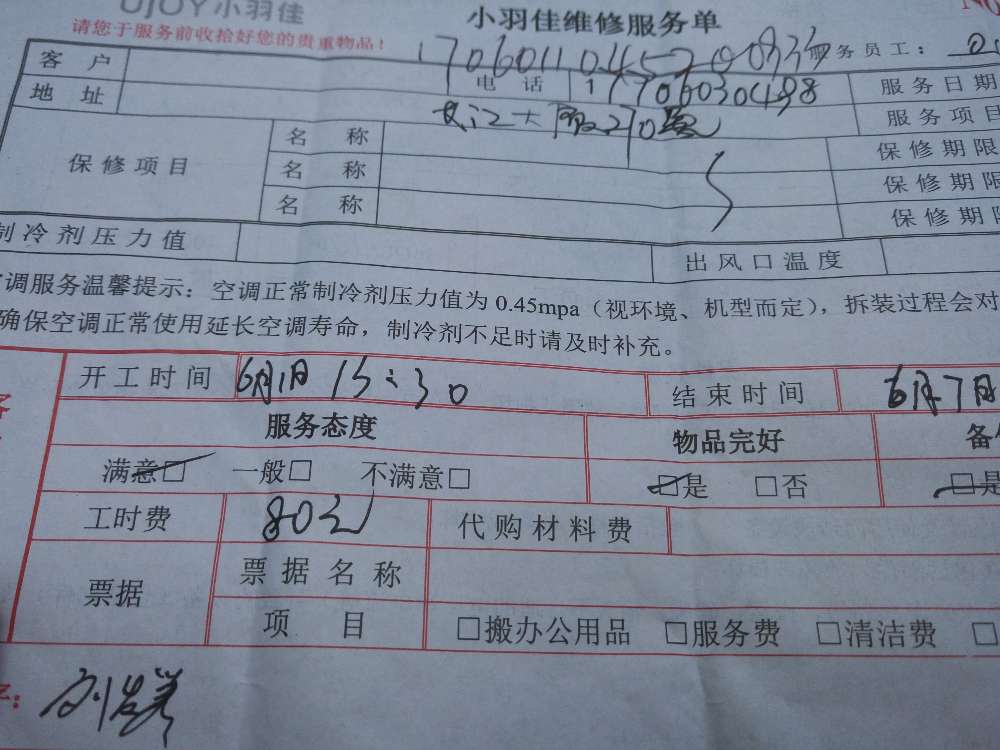 UJOY小羽佳
小羽佳维修服务单
NO
请您于服务前收拾好您的贵重物品!
务员工:
客 户
电 话
服务日期
地 址
服务项目
保修项目
名 称
保修期限
名 称
保修期限
名 称
保修期限
制冷剂压力值
出风口温度
调服务温馨提示:空调正常制冷剂压力值为 0.45mpa(视环境、机型而定),拆装过程会对
确保空调正常使用延长空调寿命,制冷剂不足时请及时补充。
开工时间 6月1日 15:30 结束时间 6月7日
服务态度 物品完好
满意□ 一般□ 不满意□ □是 □否 □是
工时费 80元 代购材料费
票据
票据名称
项 目 □搬办公用品 □服务费 □清洁费 □